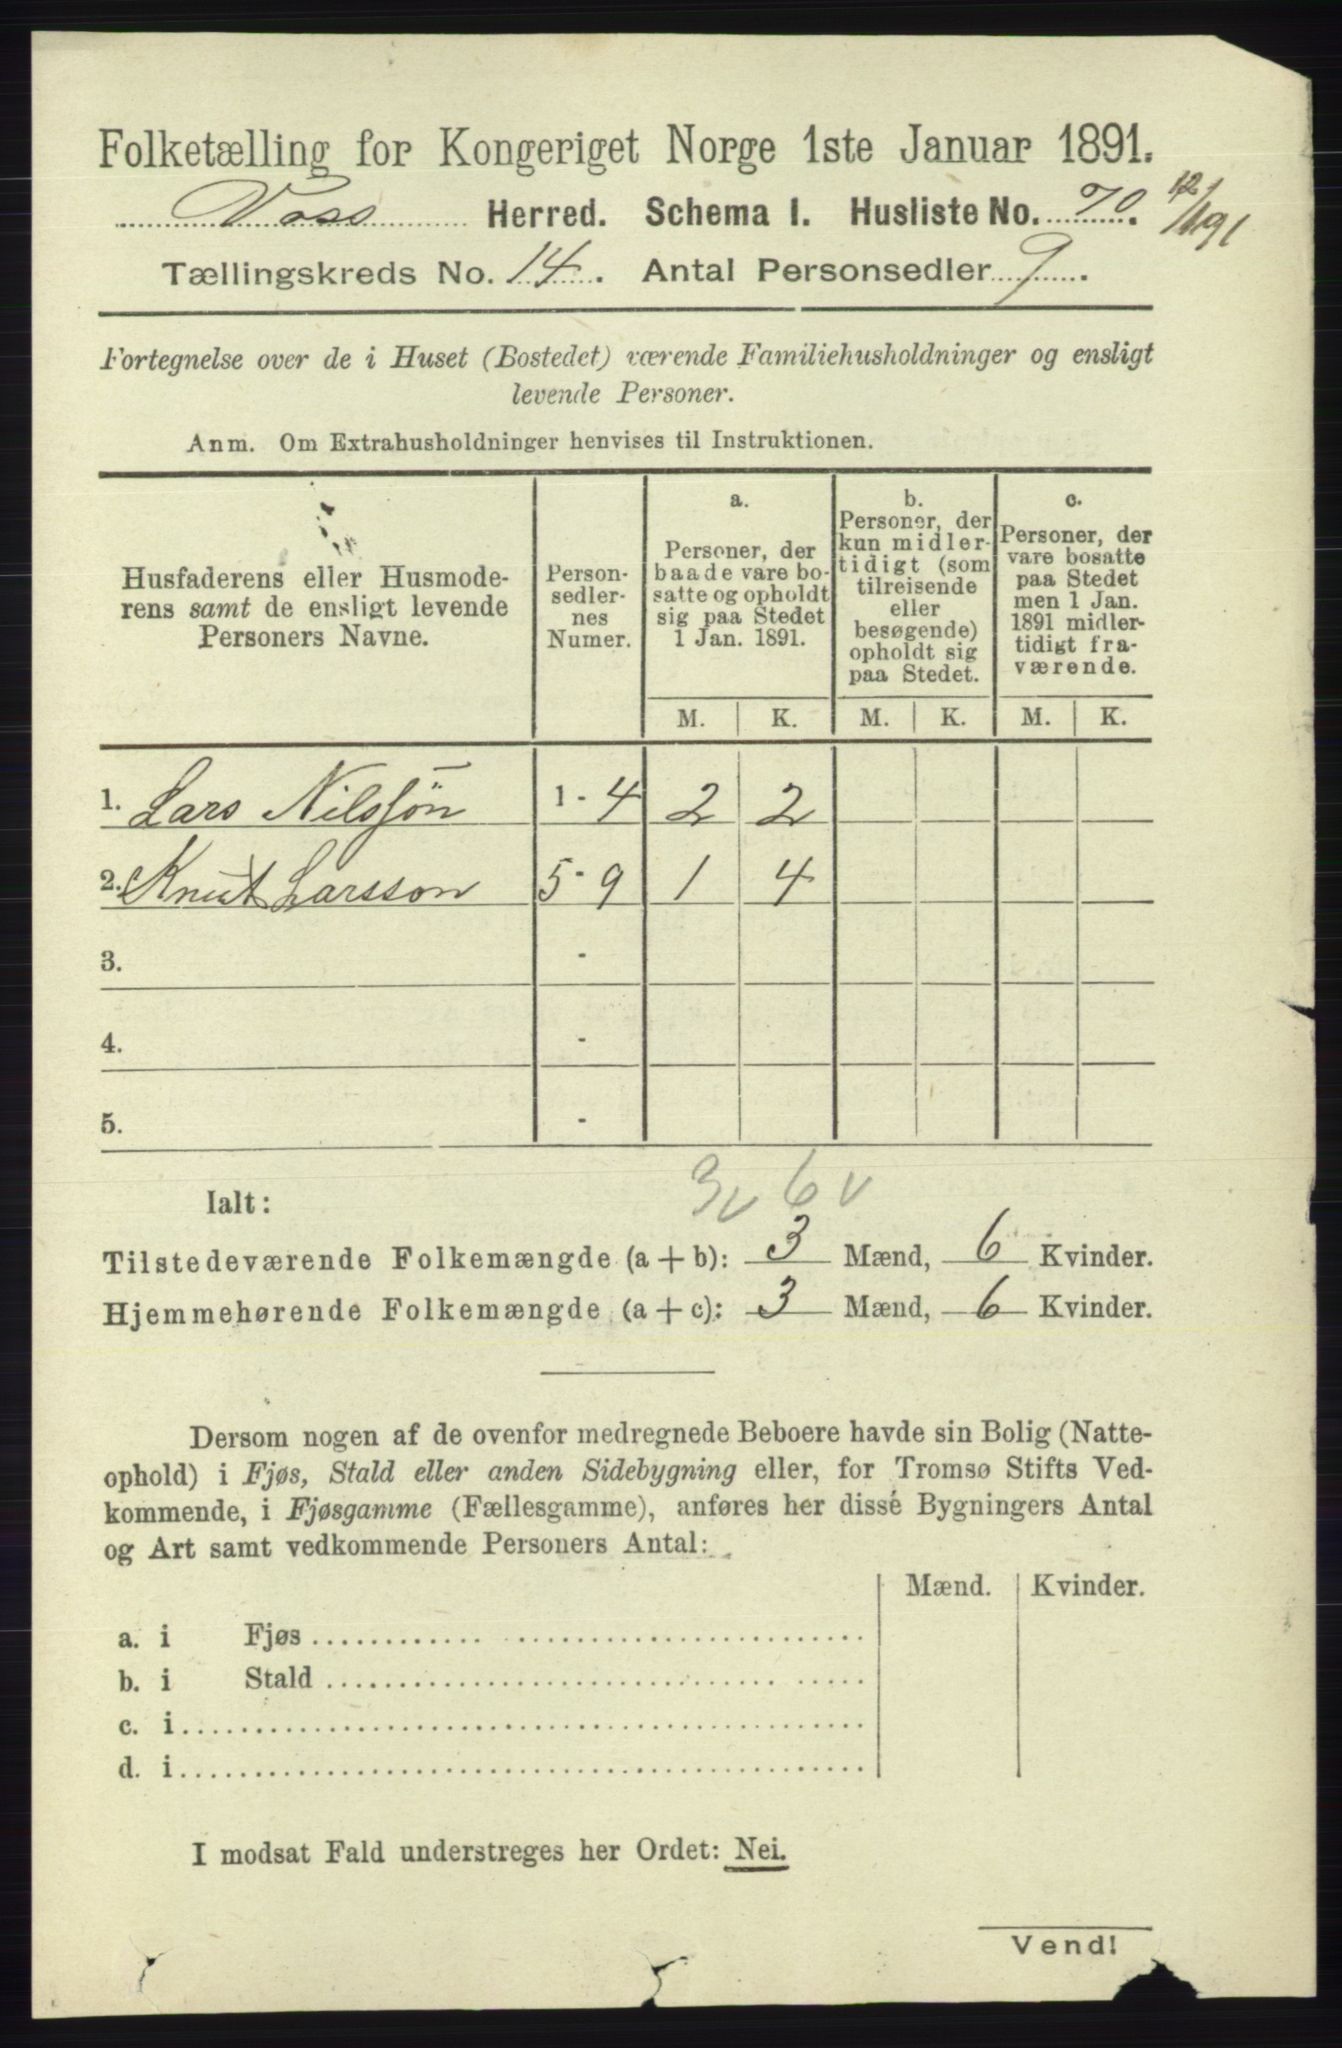 Folketælling for Kongeriget Norge 1ste Januar 1891.
Voss Herred. Schema I. Husliste No. 70. 12/1 91
Tællingskreds No. 14. Antal Personsedler 9.
Fortegnelse over de i Huset (Bostedet) værende Familiehusholdninger og ensligt
levende Personer.
Anm. Om Extrahusholdninger henvises til Instruktionen.
Husfaderens eller Husmode-
rens samt de ensligt levende
Personers Navne.
Person-
sedler-
nes
Numer.
a.
Personer, der
baade vare bo-
satte og opholdt
sig paa Stedet
1 Jan. 1891.
b.
Personer, der
kun midler-
tidigt (som
tilreisende
eller
besøgende)
opholdt sig
paa Stedet.
c.
Personer, der
vare bosatte
paa Stedet
men 1 Jan.
1891 midler-
tidigt fra-
værende.
M. K. M. K. M. K.
1. Lars Nilssön 1 - 4 2 2
2. Knut Larsson 5 - 9 1 4
3. -
4. -
5. -
3 v 6 v
Ialt:
Tilstedeværende Folkemængde (a + b): 3 Mænd, 6 Kvinder.
Hjemmehørende Folkemængde (a + c): 3 Mænd, 6 Kvinder.
Dersom nogen af de ovenfor medregnede Beboere havde sin Bolig (Natte-
ophold) i Fjøs, Stald eller anden Sidebygning eller, for Tromsø Stifts Ved-
kommende, i Fjøsgamme (Fællesgamme), anføres her disse Bygningers Antal
og Art samt vedkommende Personers Antal:
Mænd. Kvinder.
a. i Fjøs
b. i Stald
c. i
d. i
I modsat Fald understreges her Ordet: Nei.
Vend!